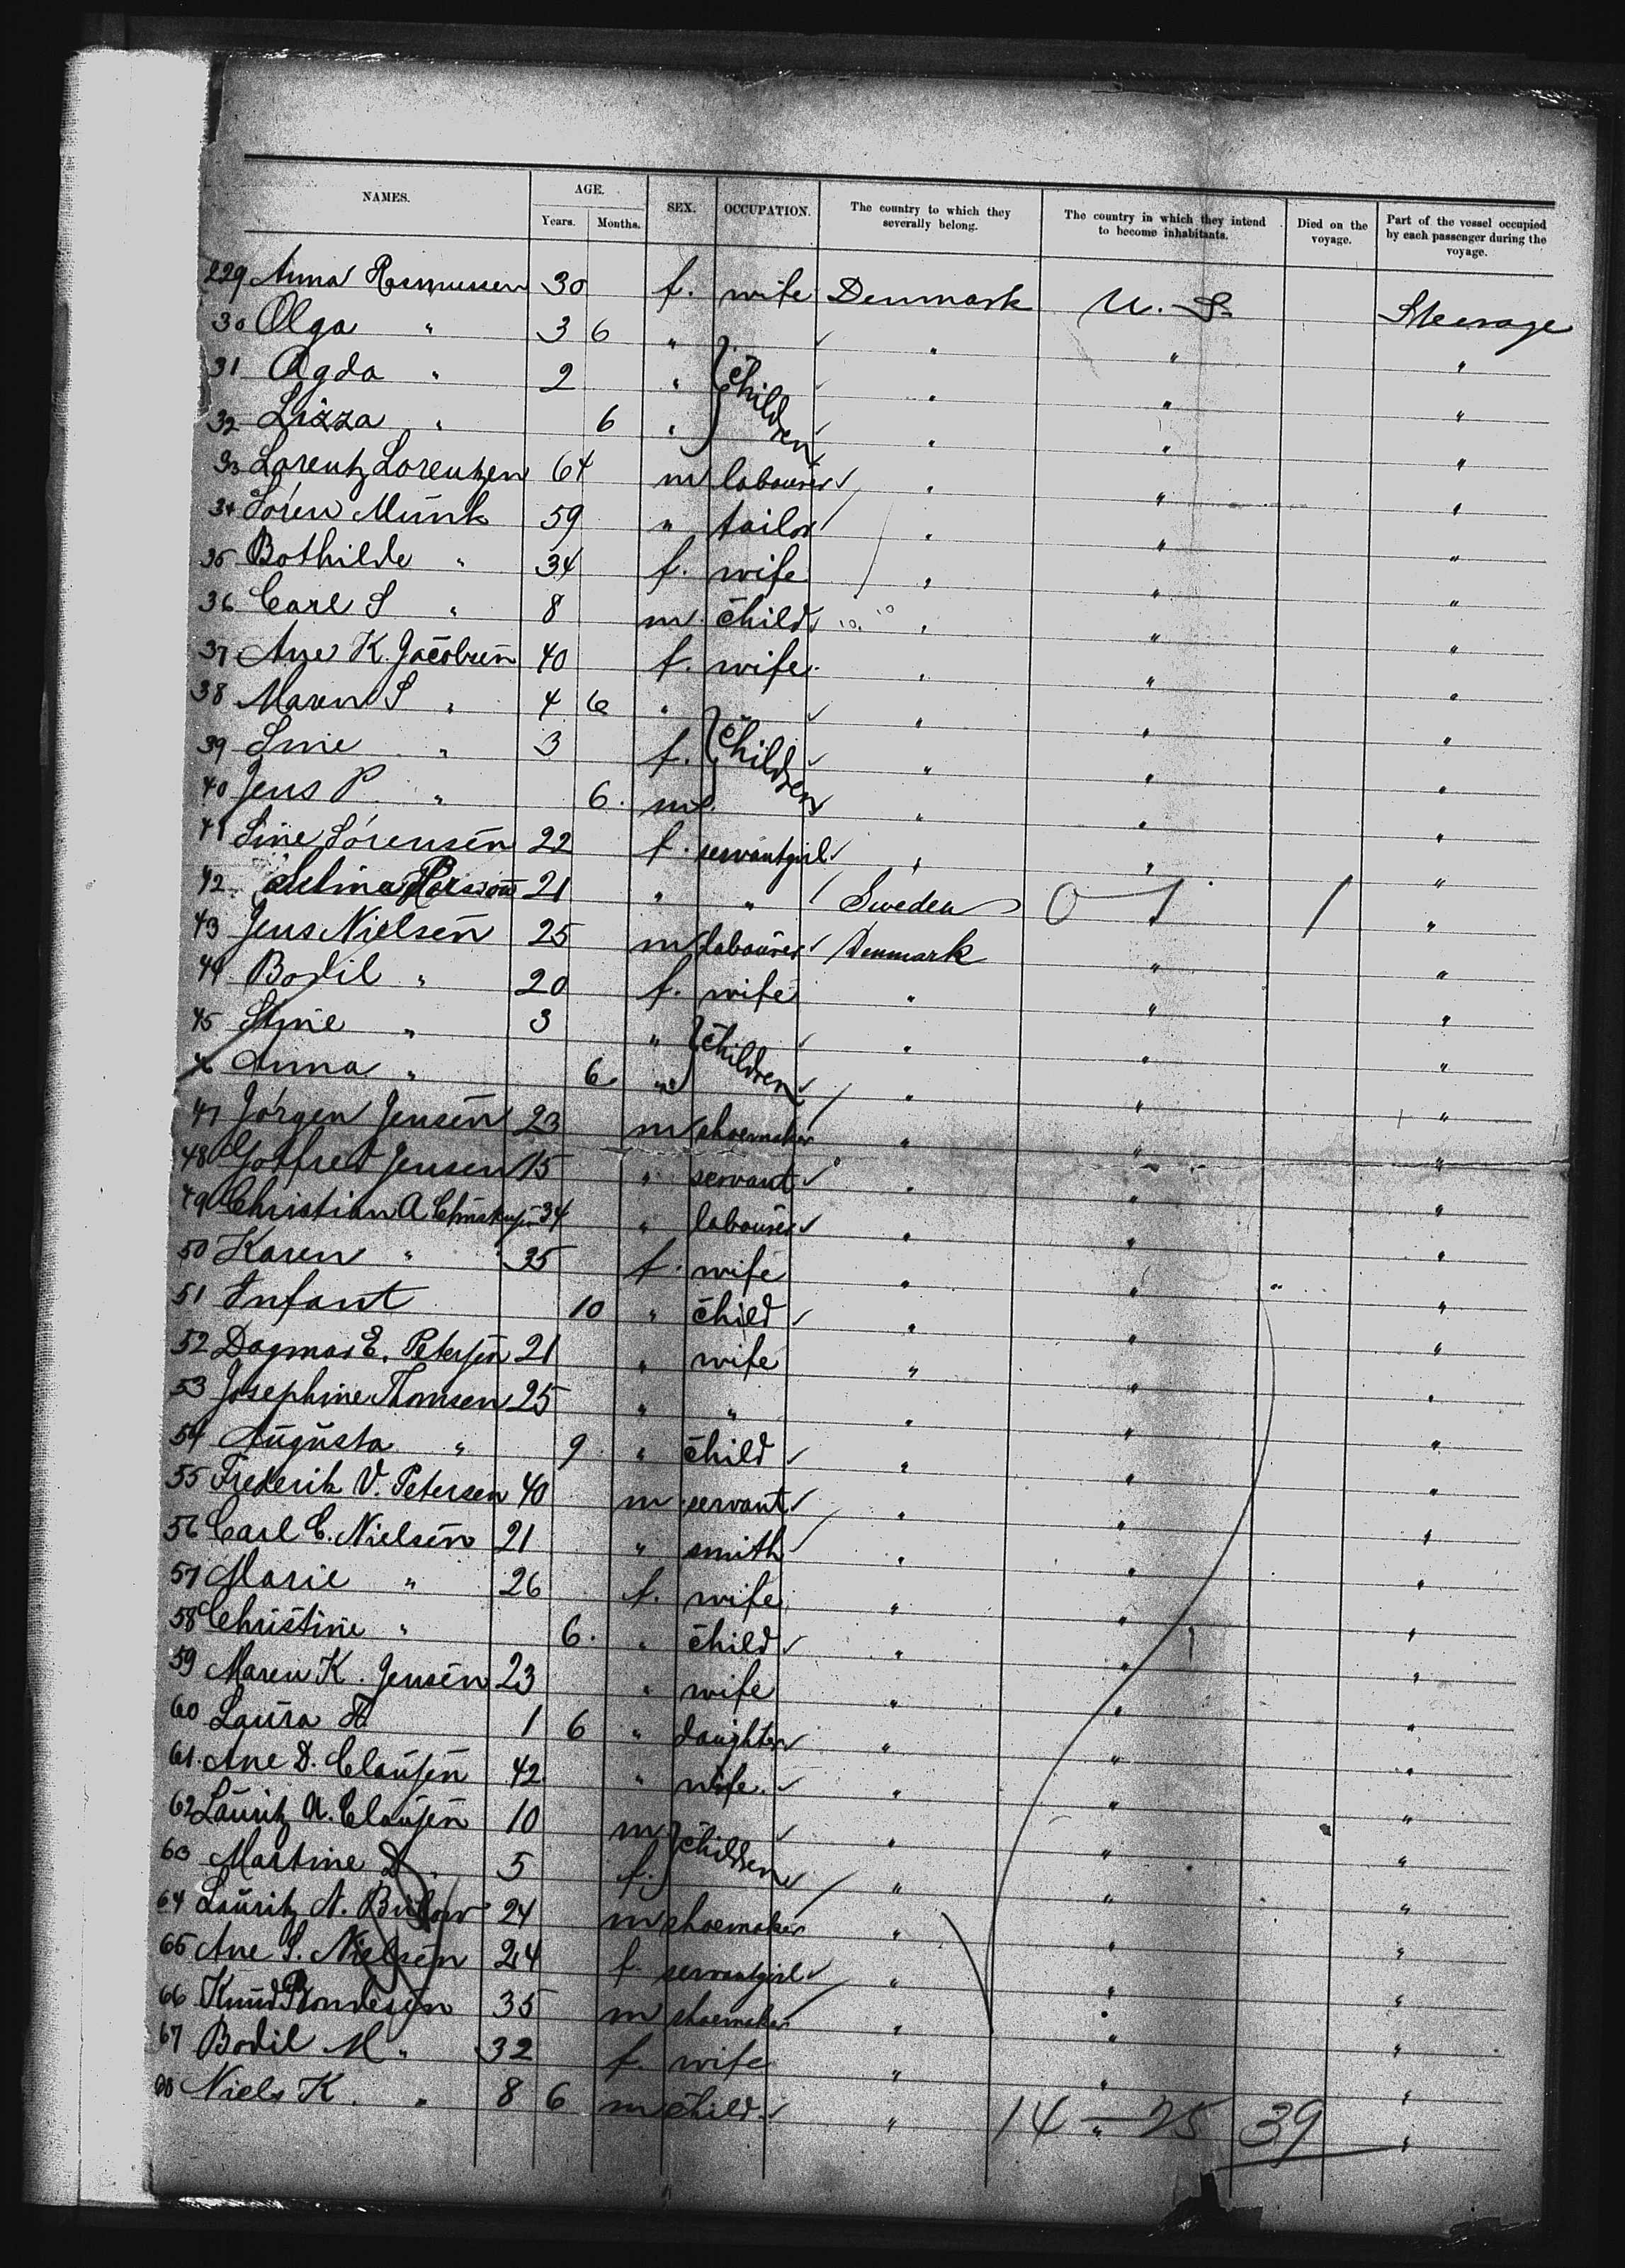 NAMES. AGE. SEX. OCCUPATION. The country to which they severally belong. The country in which they intend to become inhabitants. Died on the voyage. Part of the vessel occupied by each passenger during the voyage.
Years. Months.
229 Anna Rasmussen 30 f. wife Denmark U.S. Steerage
30 Olga " 3 6 " " " "
31 Agda " 2 " Children " " "
32 Lizza " 6 " " " "
33 Lorentz Lorentzen 64 m labourer " " "
34 Sören Munk 59 " tailor " " "
35 Bothilde " 34 f. wife " " "
36 Carl S " 8 m. child " " "
37 Ane K. Jacobsen 40 f. wife " " "
38 Maren S " 4 6 " " " "
39 Sine " 3 f. Children " " "
40 Jens P. " 6. m " " "
41 Sine Sörensen 22 f. servantgirl " " "
42 Selma 21 " " Sweden 0 1 1 "
43 Jens Nielsen 25 m labourer Denmark " "
44 Bodil " 20 f. wife " " "
45 Stine " 3 " Children " " "
46 Anna " 6 " " " "
47 Jörgen Jensen 23 m shoemaker " " "
48 Gotfred Jensen 15 " servant " " "
49 Christian A. 34 " labourer " " "
50 Karen " 35 f. wife " " "
51 Infant 10 " child " " "
52 Dagmar E. Petersen 21 " wife " " "
53 Josephine Thomsen 25 " " " " "
54 Augusta " 9. " child " " "
55 Frederik V. Petersen 40 m. servant " " "
56 Carl C. Nielsen 21 " smith " " "
57 Marie " 26 f. wife " " "
58 Christine " 6. " child " " "
59 Maren K. Jensen 23 " wife " " "
60 Laura 1 6 " daughter " " "
61. Ane D. Clausen 42 " wife " " "
62 Lauritz A. Clausen 10 m Children " " "
63 Martine 5 f. " " "
64 Lauritz N. Bülow 24 m shoemaker " " "
65 Ane S. Nielsen 24 f. servantgirl " " "
66 Knud 35 m shoemaker " " "
67 Bodil M " 32 f. wife " " "
68 Niels K. " 8 6 m child " " "
14 — 25 39